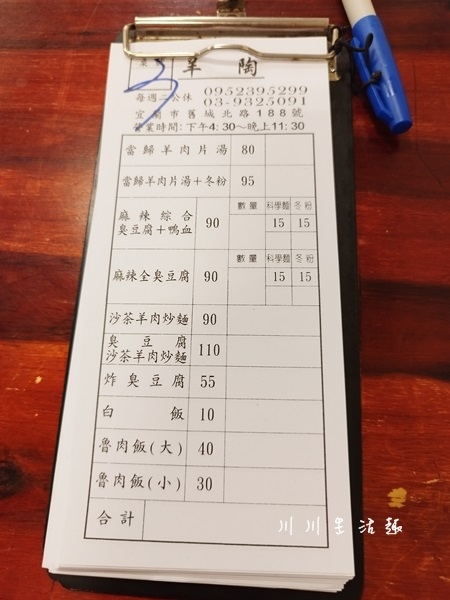 桌
羊陶
每週二公休 0952395299
03-9325091
宜蘭市舊城北路188號
營業時間:下午4:30~晚上11:30
當歸羊肉片湯 80
當歸羊肉片湯+冬粉 95
麻辣綜合 臭豆腐+鴨血 90 數量 科學麵 冬粉
15 15
麻辣全臭豆腐 90 數量 科學麵 冬粉
15 15
沙茶羊肉炒麵 90
臭豆腐
沙茶羊肉炒麵 110
炸臭豆腐 55
白飯 10
魯肉飯(大) 40
魯肉飯(小) 30
合計
川川生活趣